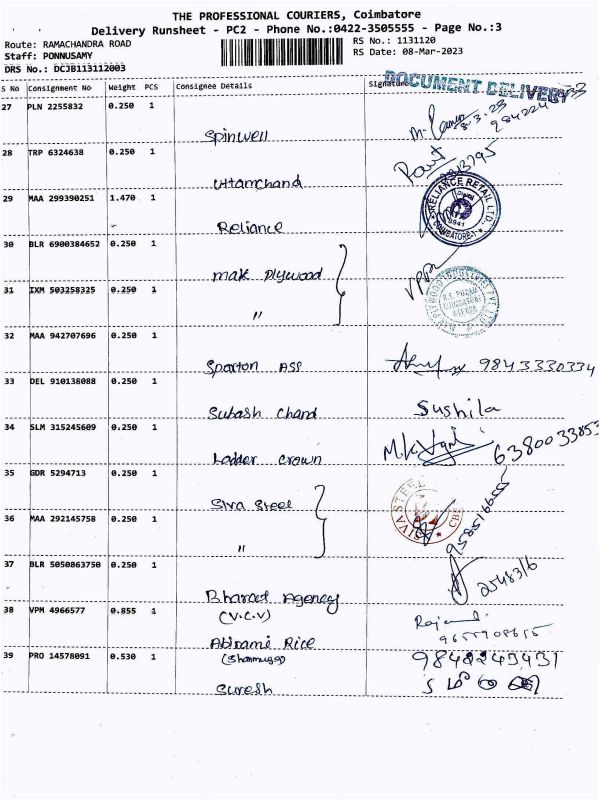 THE PROFESSIONAL COURIERS, Coimbatore
Delivery Runsheet - PC2 - Phone No.:0422-3505555 - Page No.:3
Route: RAMACHANDRA ROAD
RS No.: 1131120
Staff: PONNUSAMY
RS Date: 08-Mar-2023
DRS No.: DCJB113112003
S No Consignment No Weight PCS Consignee Details Signature
DOCUMENT DELIVERY
27 PLN 2255832 0.250 1
Spinwell
8.3.23
28 TRP 6324638 0.250 1
Uttamchand
29 MAA 299390251 1.470 1
Reliance
RELIANCE RETAIL LTD.
COIMBATORE-1
30 BLR 6900384652 0.250 1
Mak Plywood
31 IXM 503258325 0.250 1
"
32 MAA 942707696 0.250 1
Sparton ASP
9843330334
33 DEL 910138088 0.250 1
Subash Chand
Sushila
34 SLM 315245609 0.250 1
Ladder Crown
6380033853
35 GDR 5294713 0.250 1
Siva Steel
SIVA STEEL
CBE
36 MAA 292145758 0.250 1
"
37 BLR 5050863750 0.250 1
Bharat Agency
(V.C.V)
2548316
38 VPM 4966577 0.855 1
Abirami Rice
39 PRO 14578091 0.530 1
Suresh